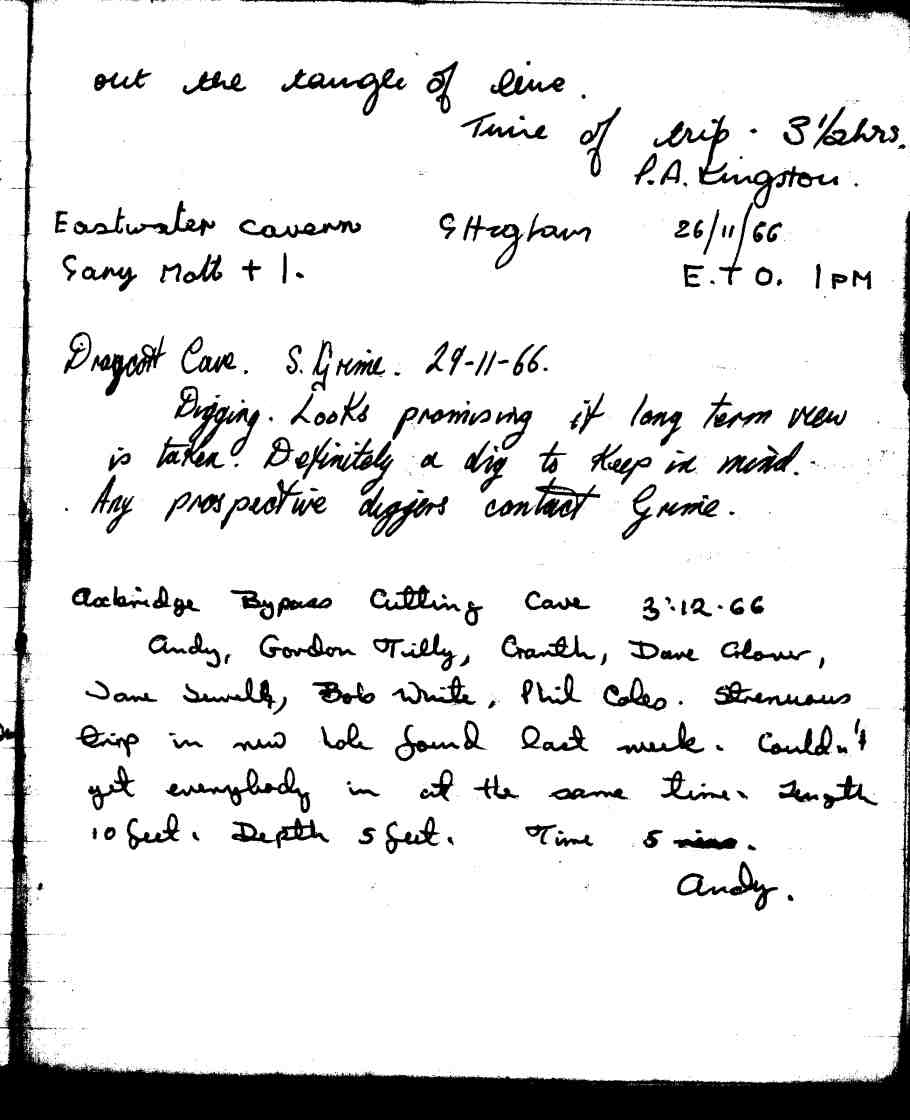 out the tangle of line.
Time of trip - 3½hrs.
P.A. Kingston.
Eastwater Cavern 26/11/66
Gary Matt + 1. E.T.O. 1PM
Draycott Cave. S. Grime. 29-11-66.
Digging. Looks promising if long term view
is taken. Definitely a dig to keep in mind.
Any prospective diggers contact Grime.
Axbridge Bypass Cutting Cave 3.12.66
Andy, Gordon Tilly, Cranth, Dave Glover,
Jane, Bob White, Phil Coles. Strenuous
trip in new hole found last week. Couldn't
get everybody in at the same time. Length
10 feet. Depth 5 feet. Time 5 mins.
Andy.